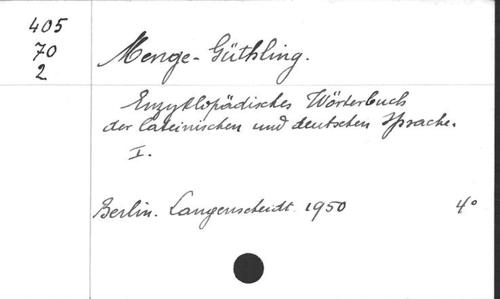 405
70
2
Menge-Güthling.
Enzyklopädisches Wörterbuch
der lateinischen und deutschen Sprache.
I.
Berlin. Langenscheidt. 1950 4°